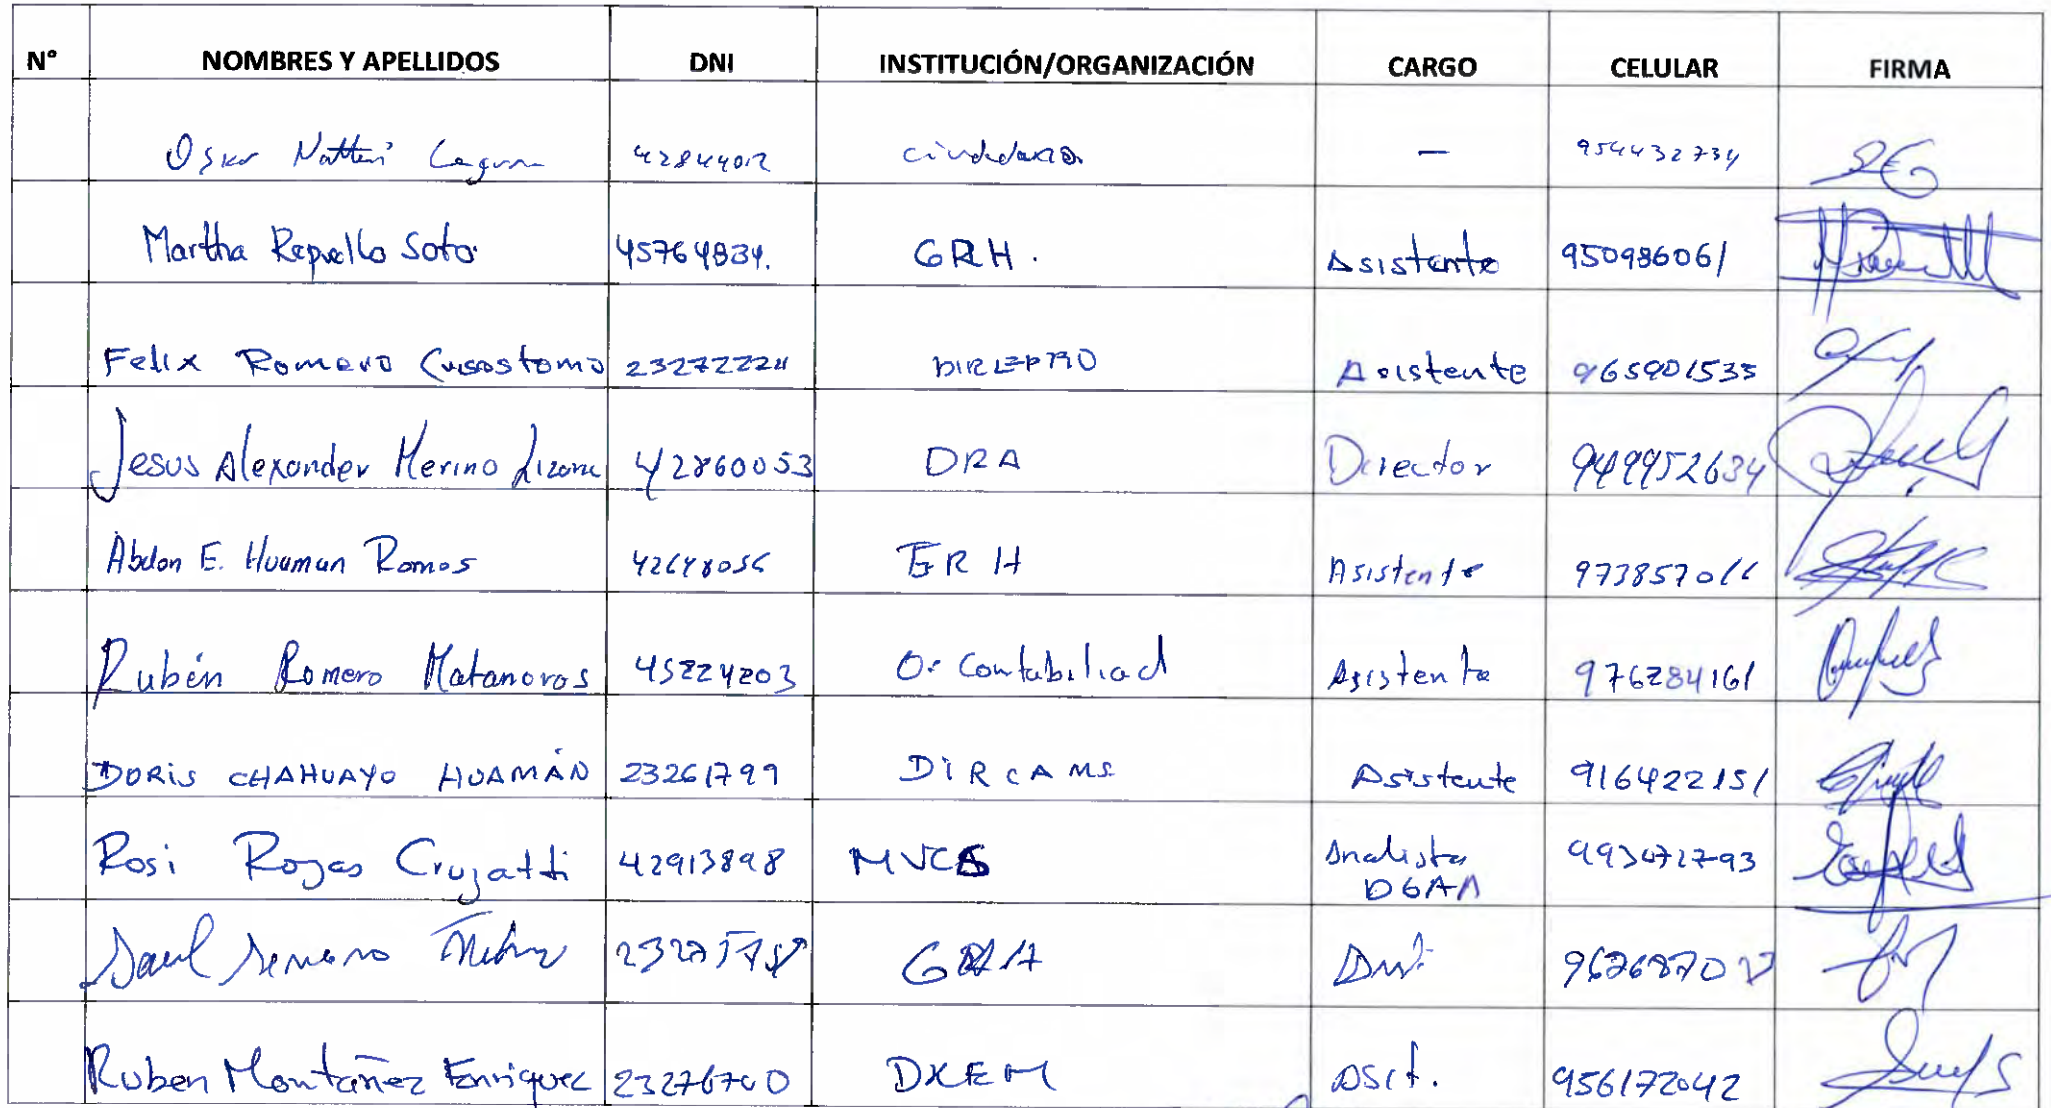 N° NOMBRES Y APELLIDOS DNI INSTITUCIÓN/ORGANIZACIÓN CARGO CELULAR FIRMA
Natteri 42844012 ciudadano — 954432734
Martha Repuello Soto. 45764834. GRH. Asistente 950986061
Felix Romero Crisostomo 23272224 Asistente 965901535
Jesus Alexander Merino Lizana 42860053 DRA Director 949952634
Abdon E. Huaman Ramos 42648056 Asistente 973857011
Rubén Romero Matamoros 45224203 O. Contabiliad Asistente 976284161
DORiS CHAHUAYO HUAMÁN 23261799 DIRCAMS Asistente 916422151
Rosi Rojas Cruzatti 42913898 MVCS Analista 993472793
DGAA
Saul GRH
Ruben Montañez Enriquez 23276700 Asit. 956172042